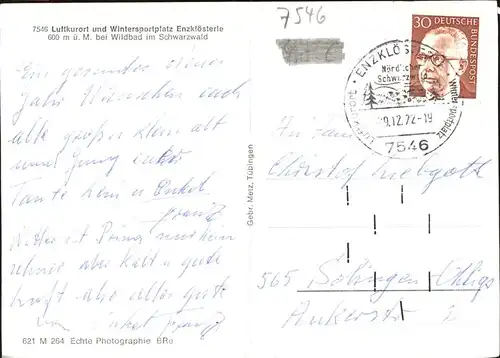 7546 Luftkurort und Wintersportplatz Enzklösterle
600 m ü. M. bei Wildbad im Schwarzwald
7546
30 DEUTSCHE
BUNDESPOST
ENZKLÖSTERLE
Nördlicher
Schwarzwald
Luftkurort
Wintersportplatz
.12.72-19
7546
Ein gesundes neues
Jahr wünschen euch
alle großen klein alt
und jung
Tante Onkel
Franz
ist Prima
aber kalt u gute
Luft also alles gute
Gebr. Metz, Tübingen
An Fam
Christof Liebgott
565 Solingen Ohligs
Ankerstr 2
621 M 264 Echte Photographie BRo